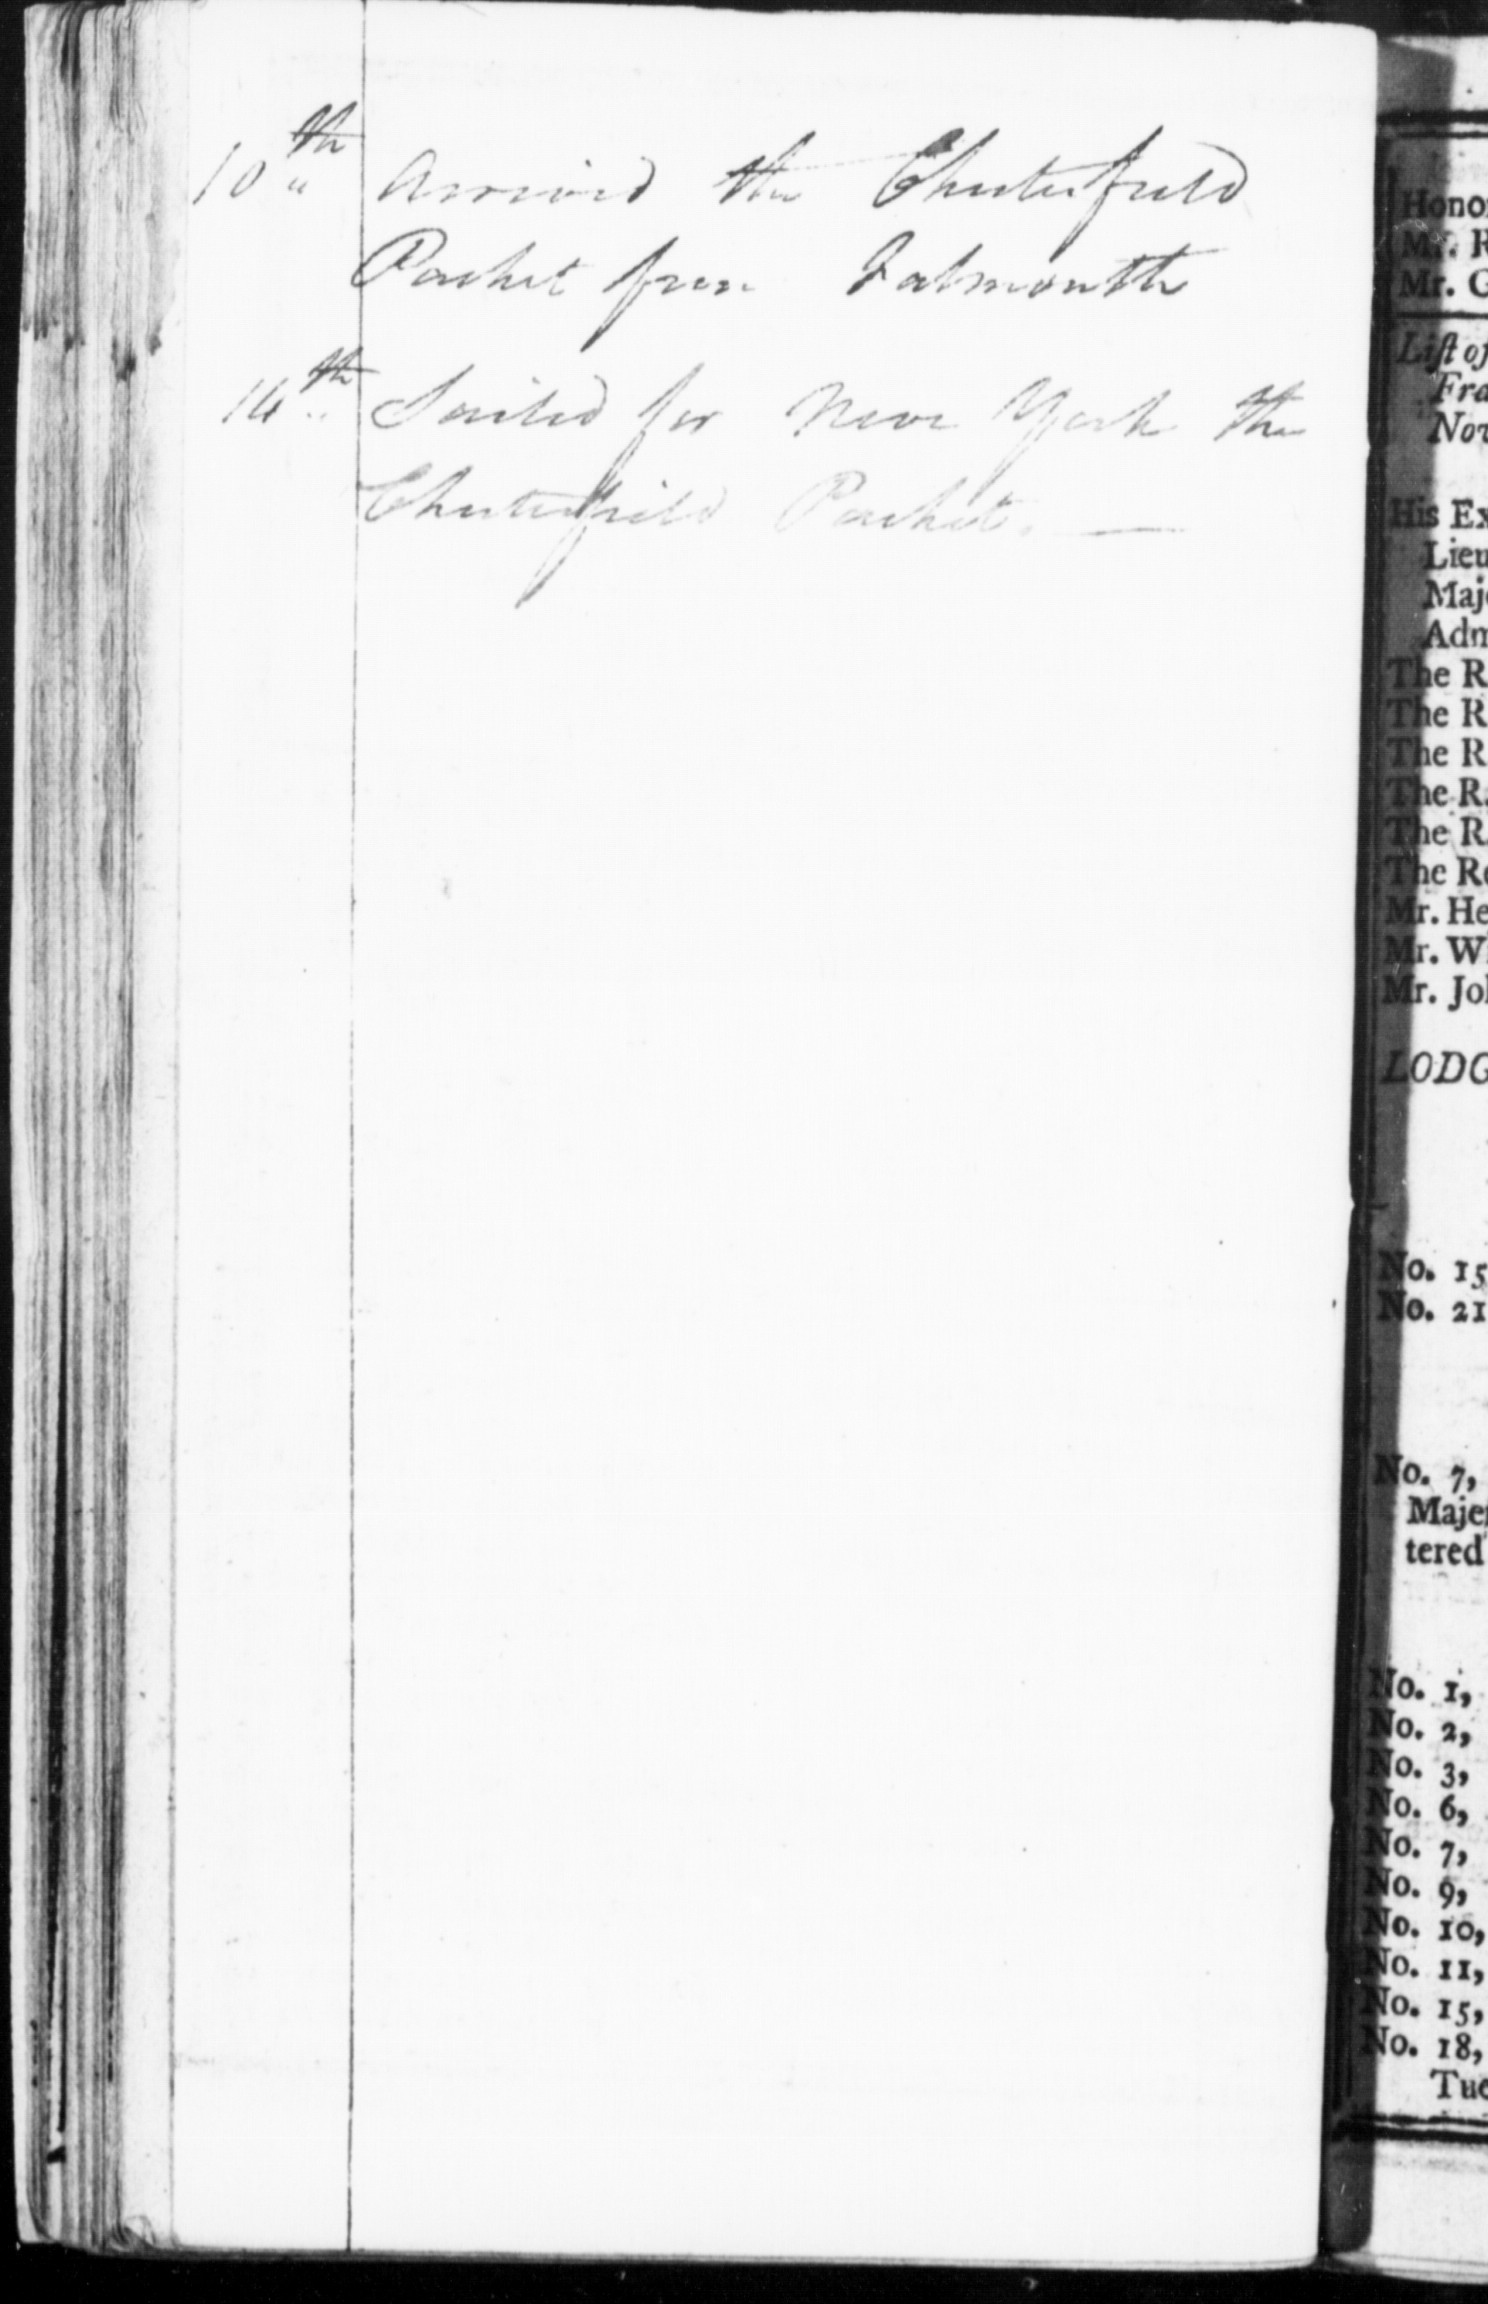 10th Arrived the Chesterfield
Packet from Falmouth
14th Sailed for New York the
Chesterfield Packet. —
Hono
Mr. R
Mr. G
List of
Fra
Nov
His Ex
Lieu
Maje
Adm
The R
The R
The R
The R
The R
The Re
Mr. He
Mr. W
Mr. Joh
LODG
No. 15
No. 21
No. 7,
Majes
tered
No. 1,
No. 2,
No. 3,
No. 6,
No. 7,
No. 9,
No. 10,
No. 11,
No. 15,
No. 18,
Tue